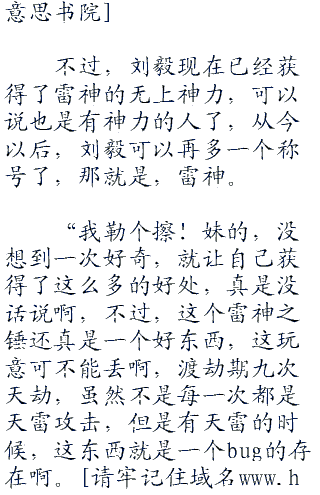 意思书院]
不过，刘毅现在已经获
得了雷神的无上神力，可以
说也是有神力的人了，从今
以后，刘毅可以再多一个称
号了，那就是，雷神。
“我勒个擦！妹的，没
想到一次好奇，就让自己获
得了这么多的好处，真是没
话说啊，不过，这个雷神之
锤还真是一个好东西，这玩
意可不能丢啊，渡劫期九次
天劫，虽然不是每一次都是
天雷攻击，但是有天雷的时
候，这东西就是一个bug的存
在啊。[请牢记住域名www.h